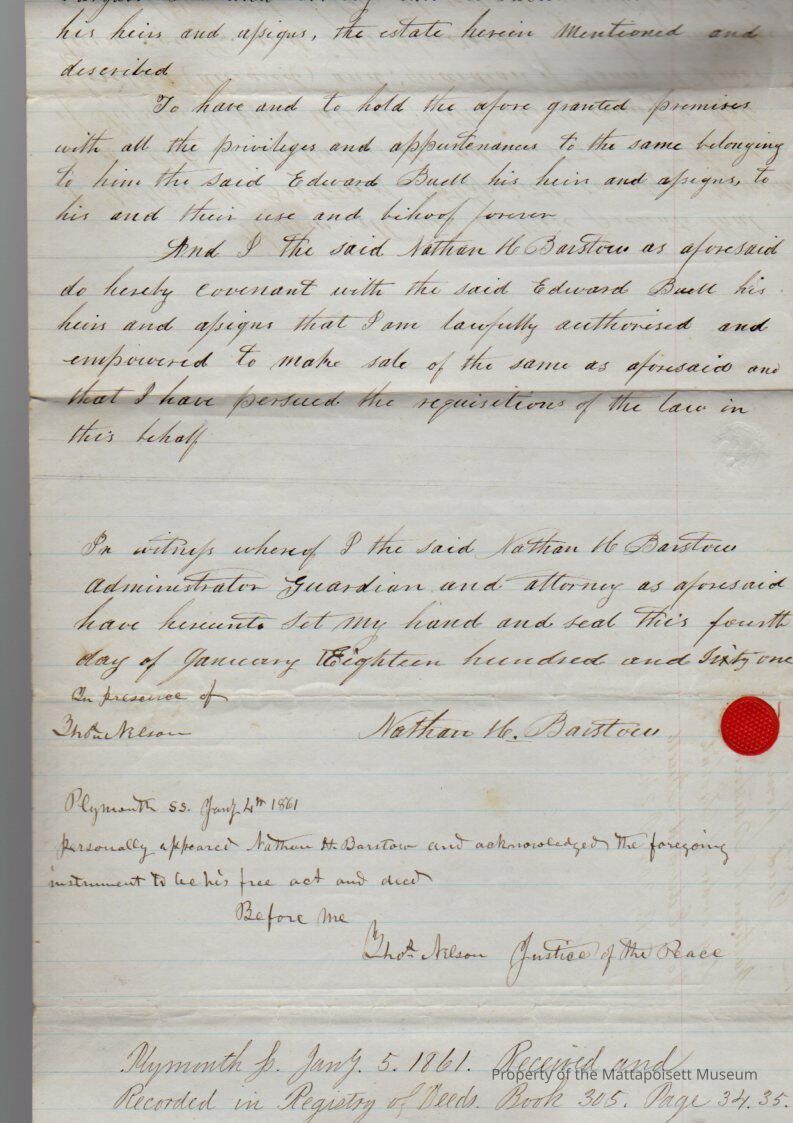 his heirs and assigns, the estate herein Mentioned and
described
To have and to hold the afore granted premises
with all the privileges and appurtenances to the same belonging
to him the said Edward Buell his heirs and assigns, to
his and their use and behoof forever
And I the said Nathan H Barstow as aforesaid
do hereby covenant with the said Edward Buell his
heirs and assigns that I am lawfully authorised and
empowered to make sale of the same as aforesaid and
that I have persued the requisitions of the law in
this behalf
In witness whereof I the said Nathan H Barstow
Administrator Guardian and attorney as aforesaid
have hereunto set my hand and seal this fourth
day of January Eighteen hundred and Sixty one
In presence of
Thos Nelson Nathan H. Barstow
Plymouth ss. Jany 4th 1861
personally appeared Nathan H Barstow and acknowledged the foregoing
instrument to be his free act and deed
Before me
Thos Nelson Justice of the Peace
Plymouth ss. Jany. 5. 1861. Received and
Property of the Mattapoisett Museum
Recorded in Registry of Deeds. Book 305. Page 34.35.